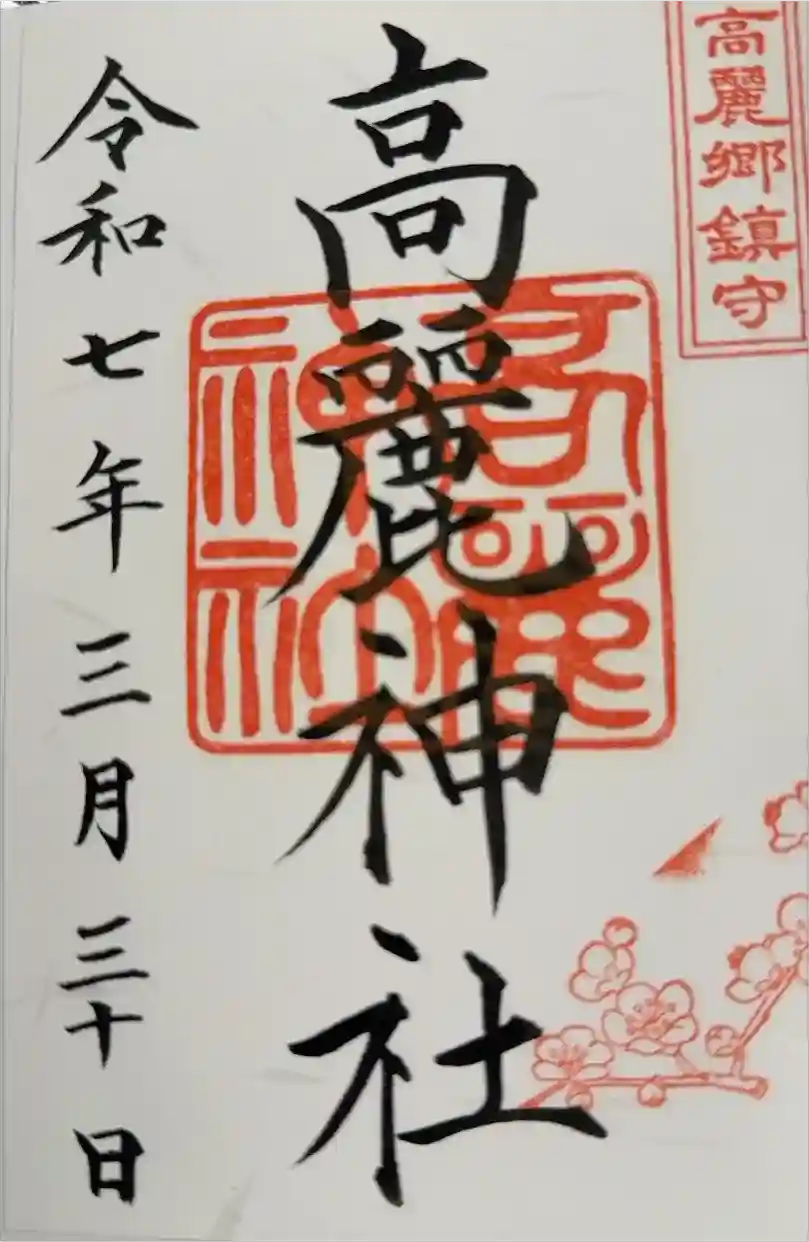 高麗郷鎮守
高麗神社
高麗神社
令和七年三月三十日